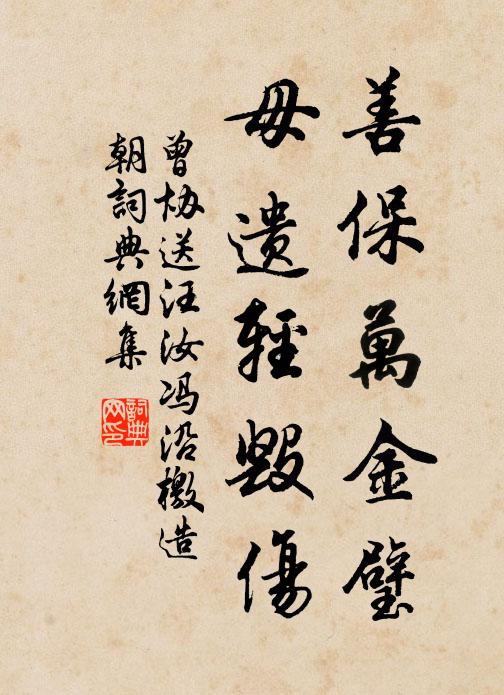 善保萬金璧
毋遺輕毀傷
曾协送汪汝冯沿檄造
朝詞典網集
詞典网印